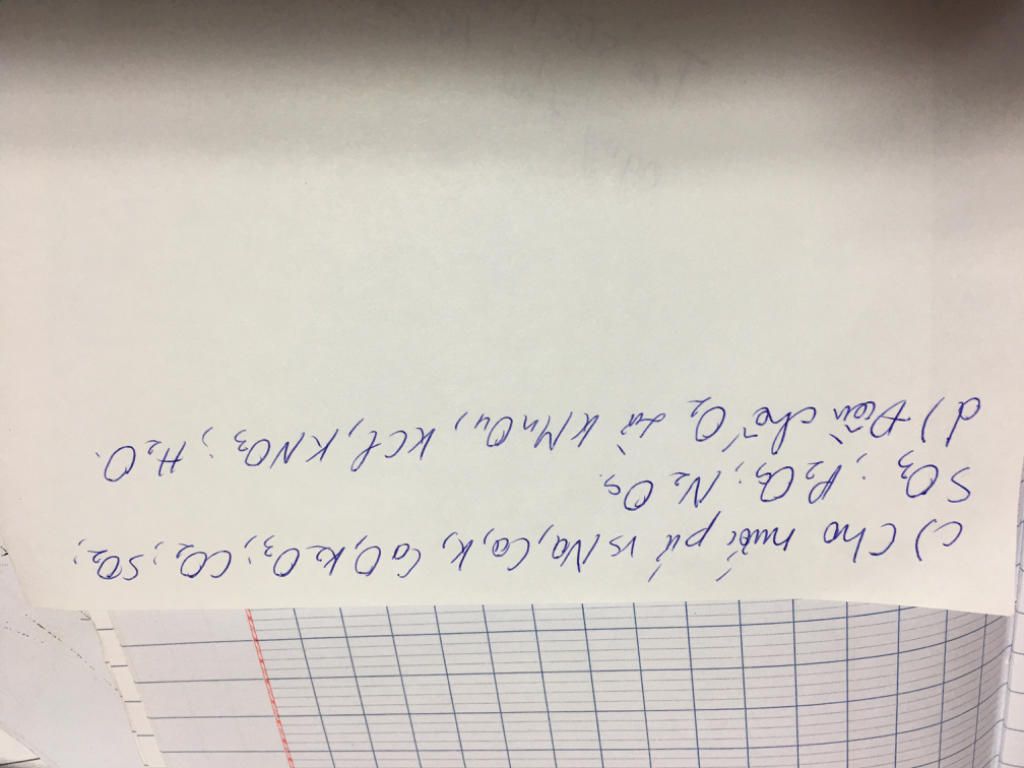 c) Cho nước pứ vs Na, Ca, K, CaO, K2O3; CO2; SO2;
SO3; P2O5; N2O5.
d) Điều chế O2 từ KMnO4, KCl, KNO3; H2O.